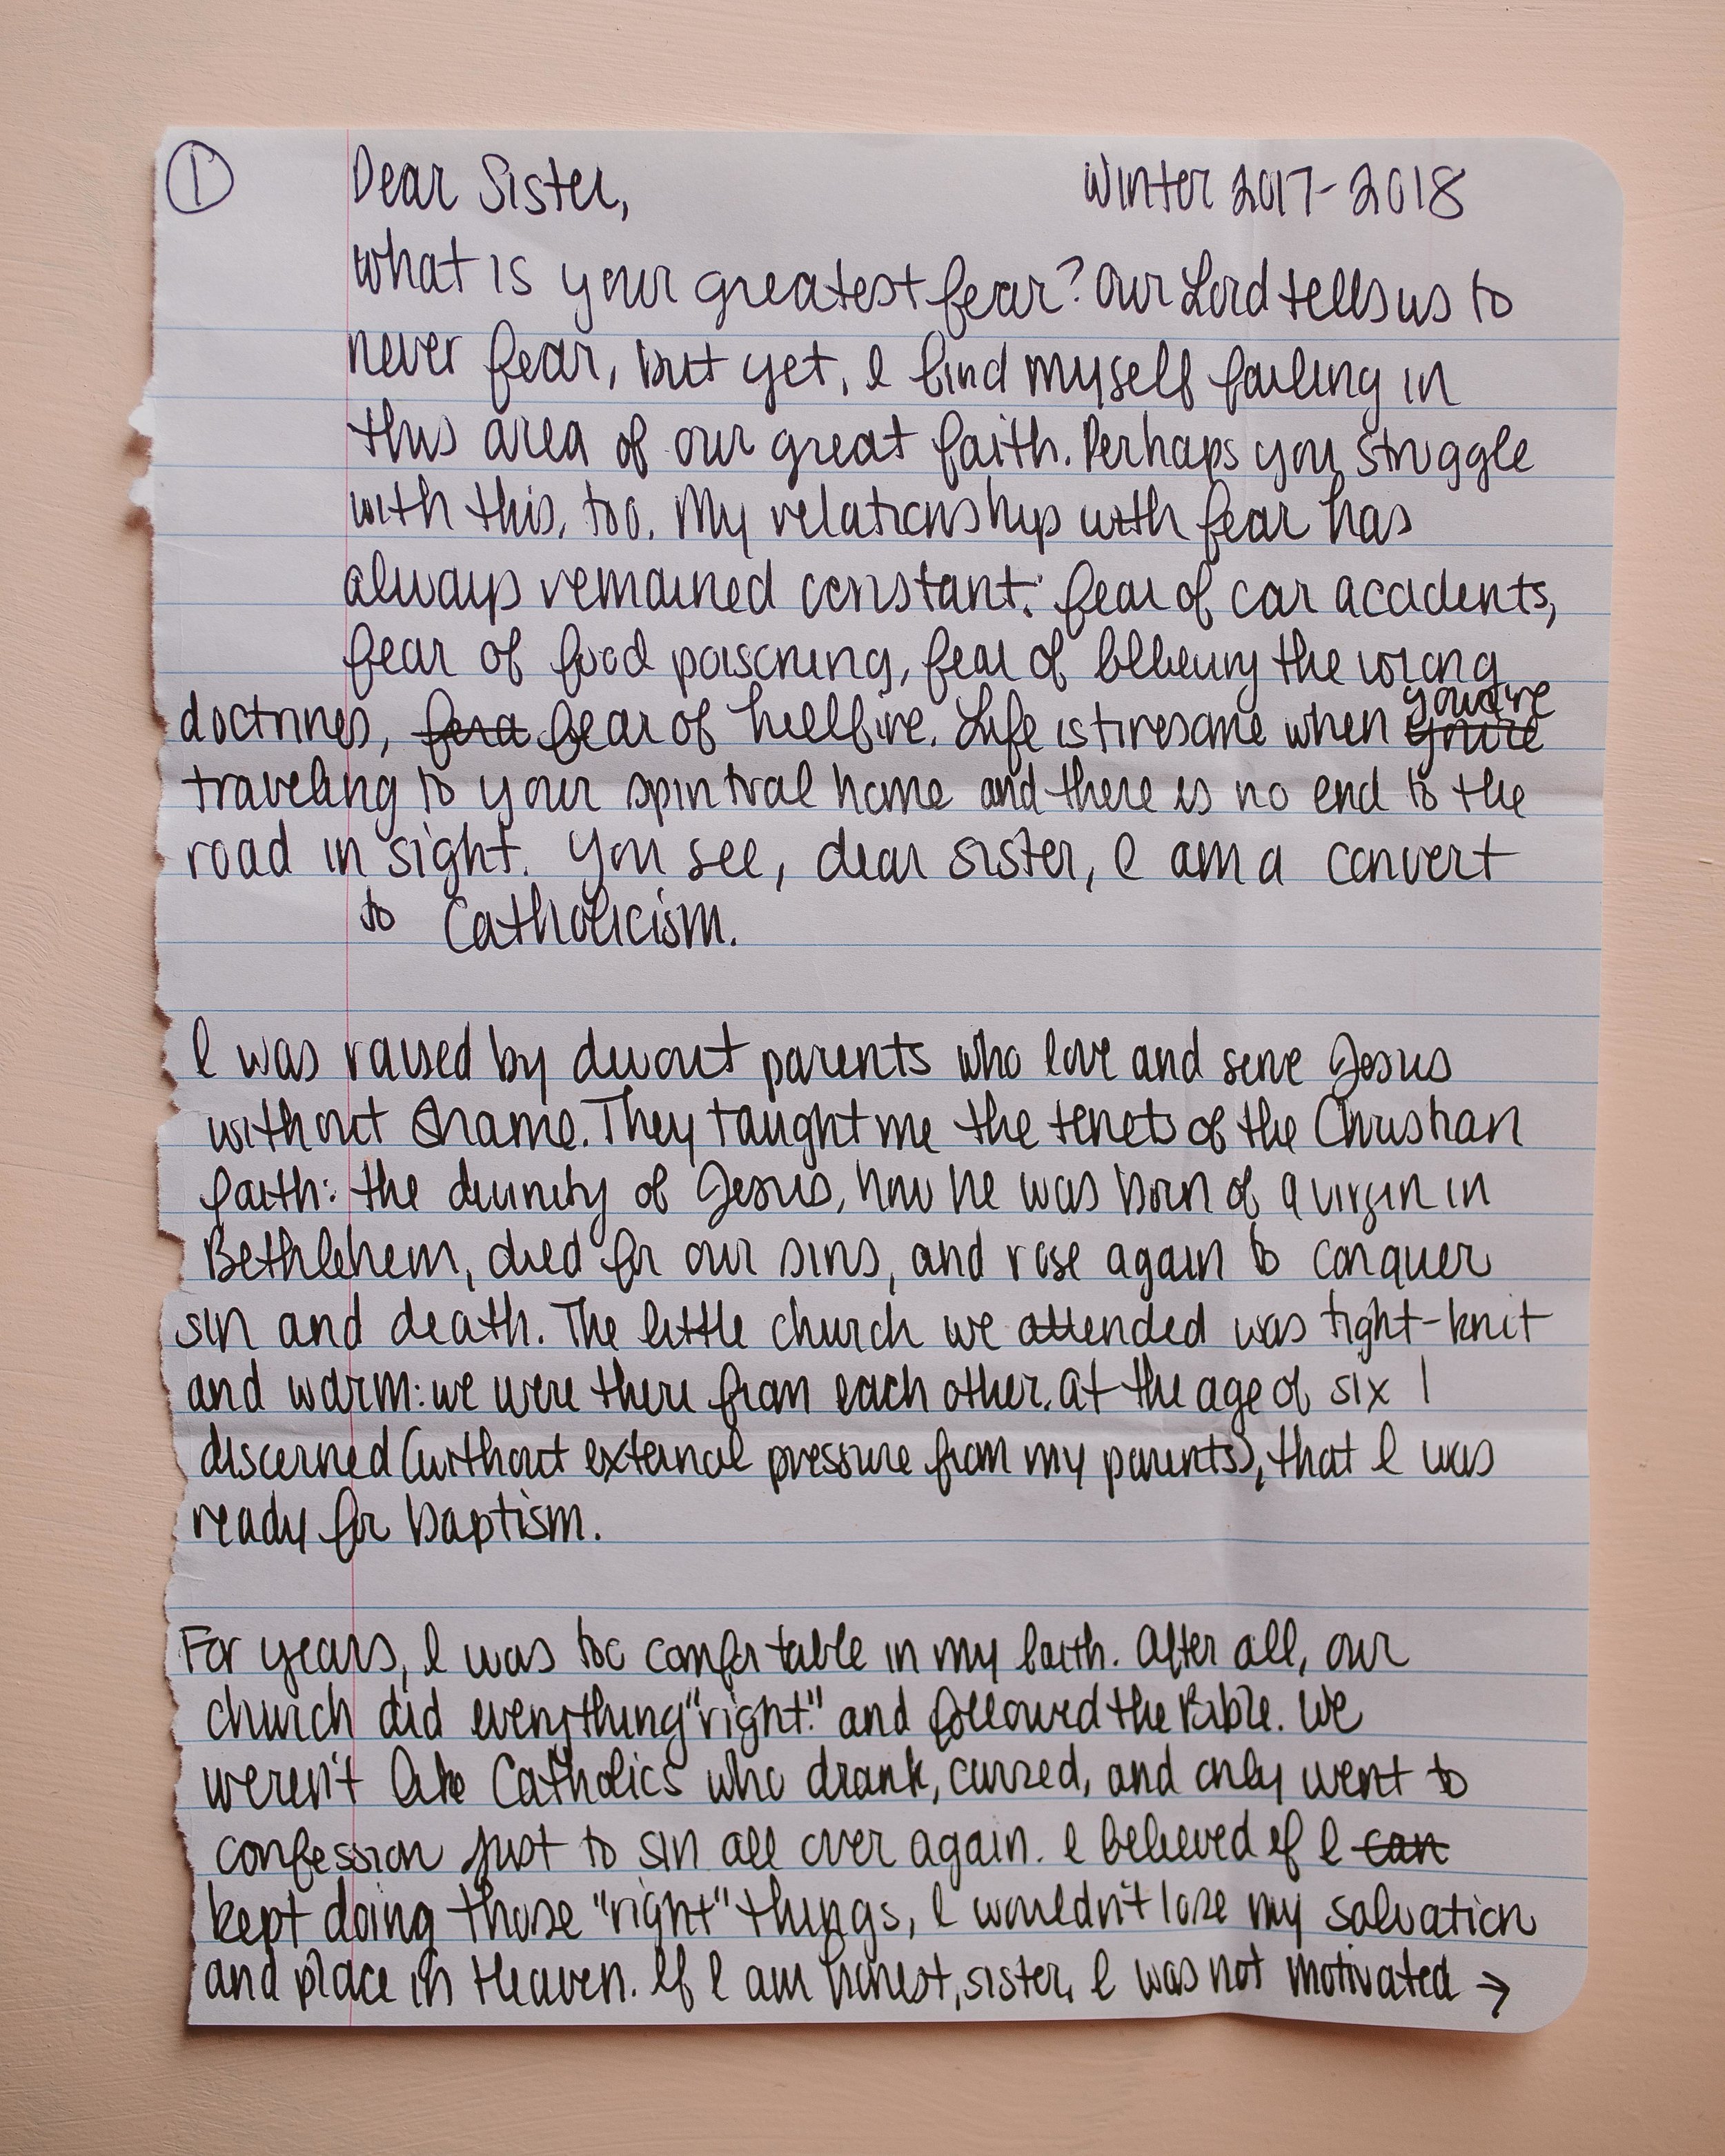 ① Dear Sister, Winter 2017-2018
What is your greatest fear? Our Lord tells us to
never fear, but yet, I find myself failing in
this area of our great faith. Perhaps you struggle
with this, too. My relationship with fear has
always remained constant: fear of car accidents,
fear of food poisoning, fear of believing the wrong
doctrines, fear of hellfire. Life is tiresome when you're
traveling to your spiritual home and there is no end to the
road in sight. You see, dear sister, I am a convert
to Catholicism.
I was raised by devout parents who love and serve Jesus
without shame. They taught me the tenets of the Christian
faith: the divinity of Jesus, how he was born of a virgin in
Bethlehem, died for our sins, and rose again to conquer
sin and death. The little church we attended was tight-knit
and warm: we were there from each other. At the age of six I
discerned (without external pressure from my parents), that I was
ready for baptism.
For years, I was too comfortable in my faith. After all, our
church did everything "right." and followed the Bible. We
weren't like Catholics who drank, cursed, and only went to
confession just to sin all over again. I believed if I can
kept doing those "right" things, I wouldn't lose my salvation
and place in Heaven. If I am honest, sister, I was not motivated →